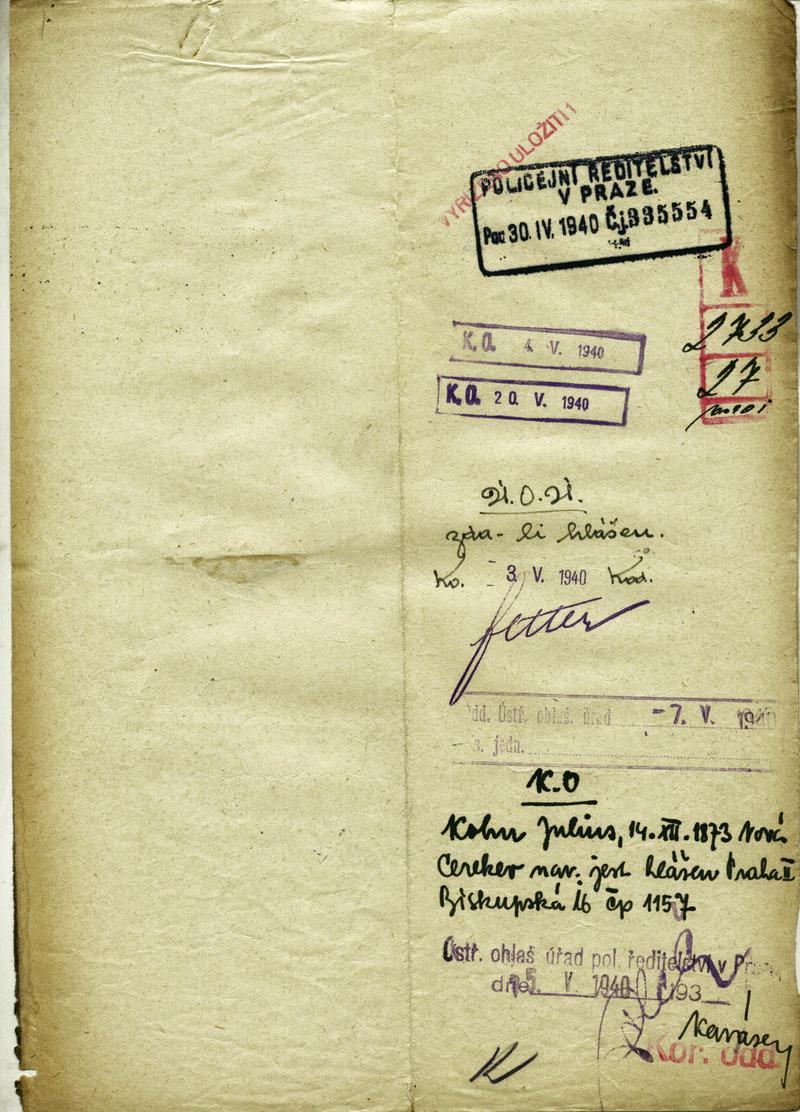 VYŘÍZENO ULOŽITI!
POLICEJNÍ ŘEDITELSTVÍ
V PRAZE.
30. IV. 1940 Čj. 335554
K
2733
27
K.O. 4. V. 1940
K.O. 20. V. 1940
zda-li hlášen.
Ko. 3. V. 1940 Kad.
Ústř. ohlaš. úřad -7. V. 1940
s. jedn.
K.O
Kohn Julius, 14.XII.1873 Nová
Cerekev nar. jest hlášen Praha II
Biskupská 16 čp 1157
Ústř. ohlaš úřad pol. ředitelství v
dne 15. V. 1940 193
Kor. odd.
K